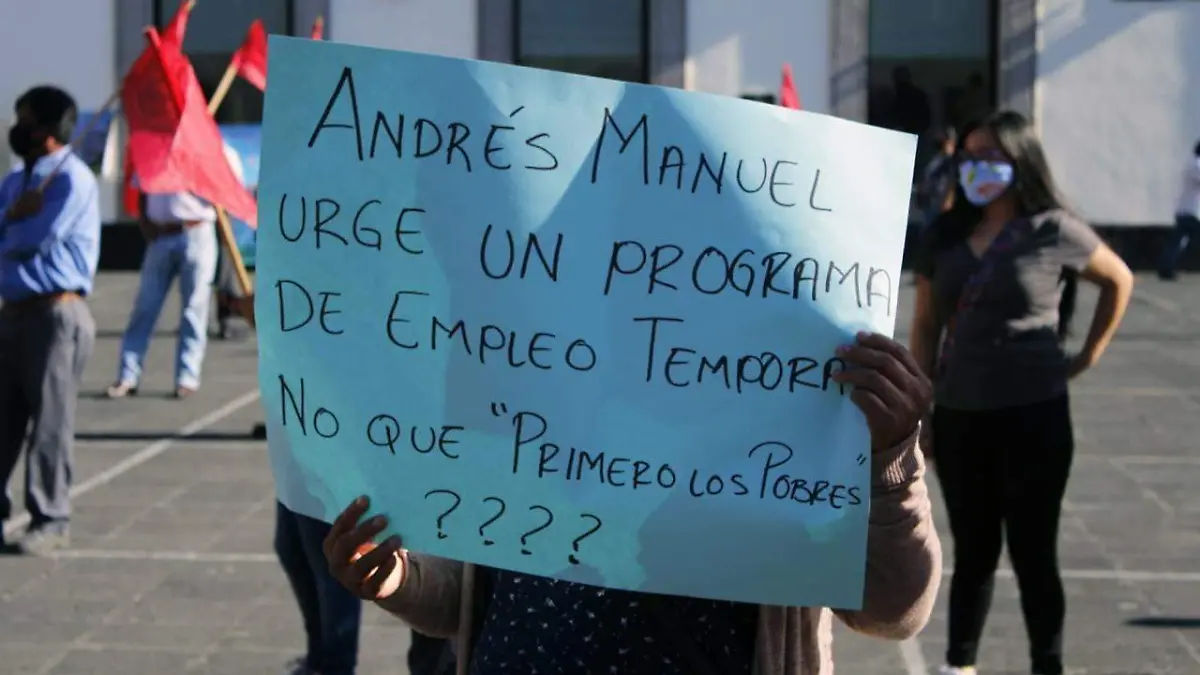 ANDRÉS MANUEL
URGE UN PROGRAMA
DE EMPLEO TEMPORA
NO QUE "PRIMERO LOS POBRES"
????